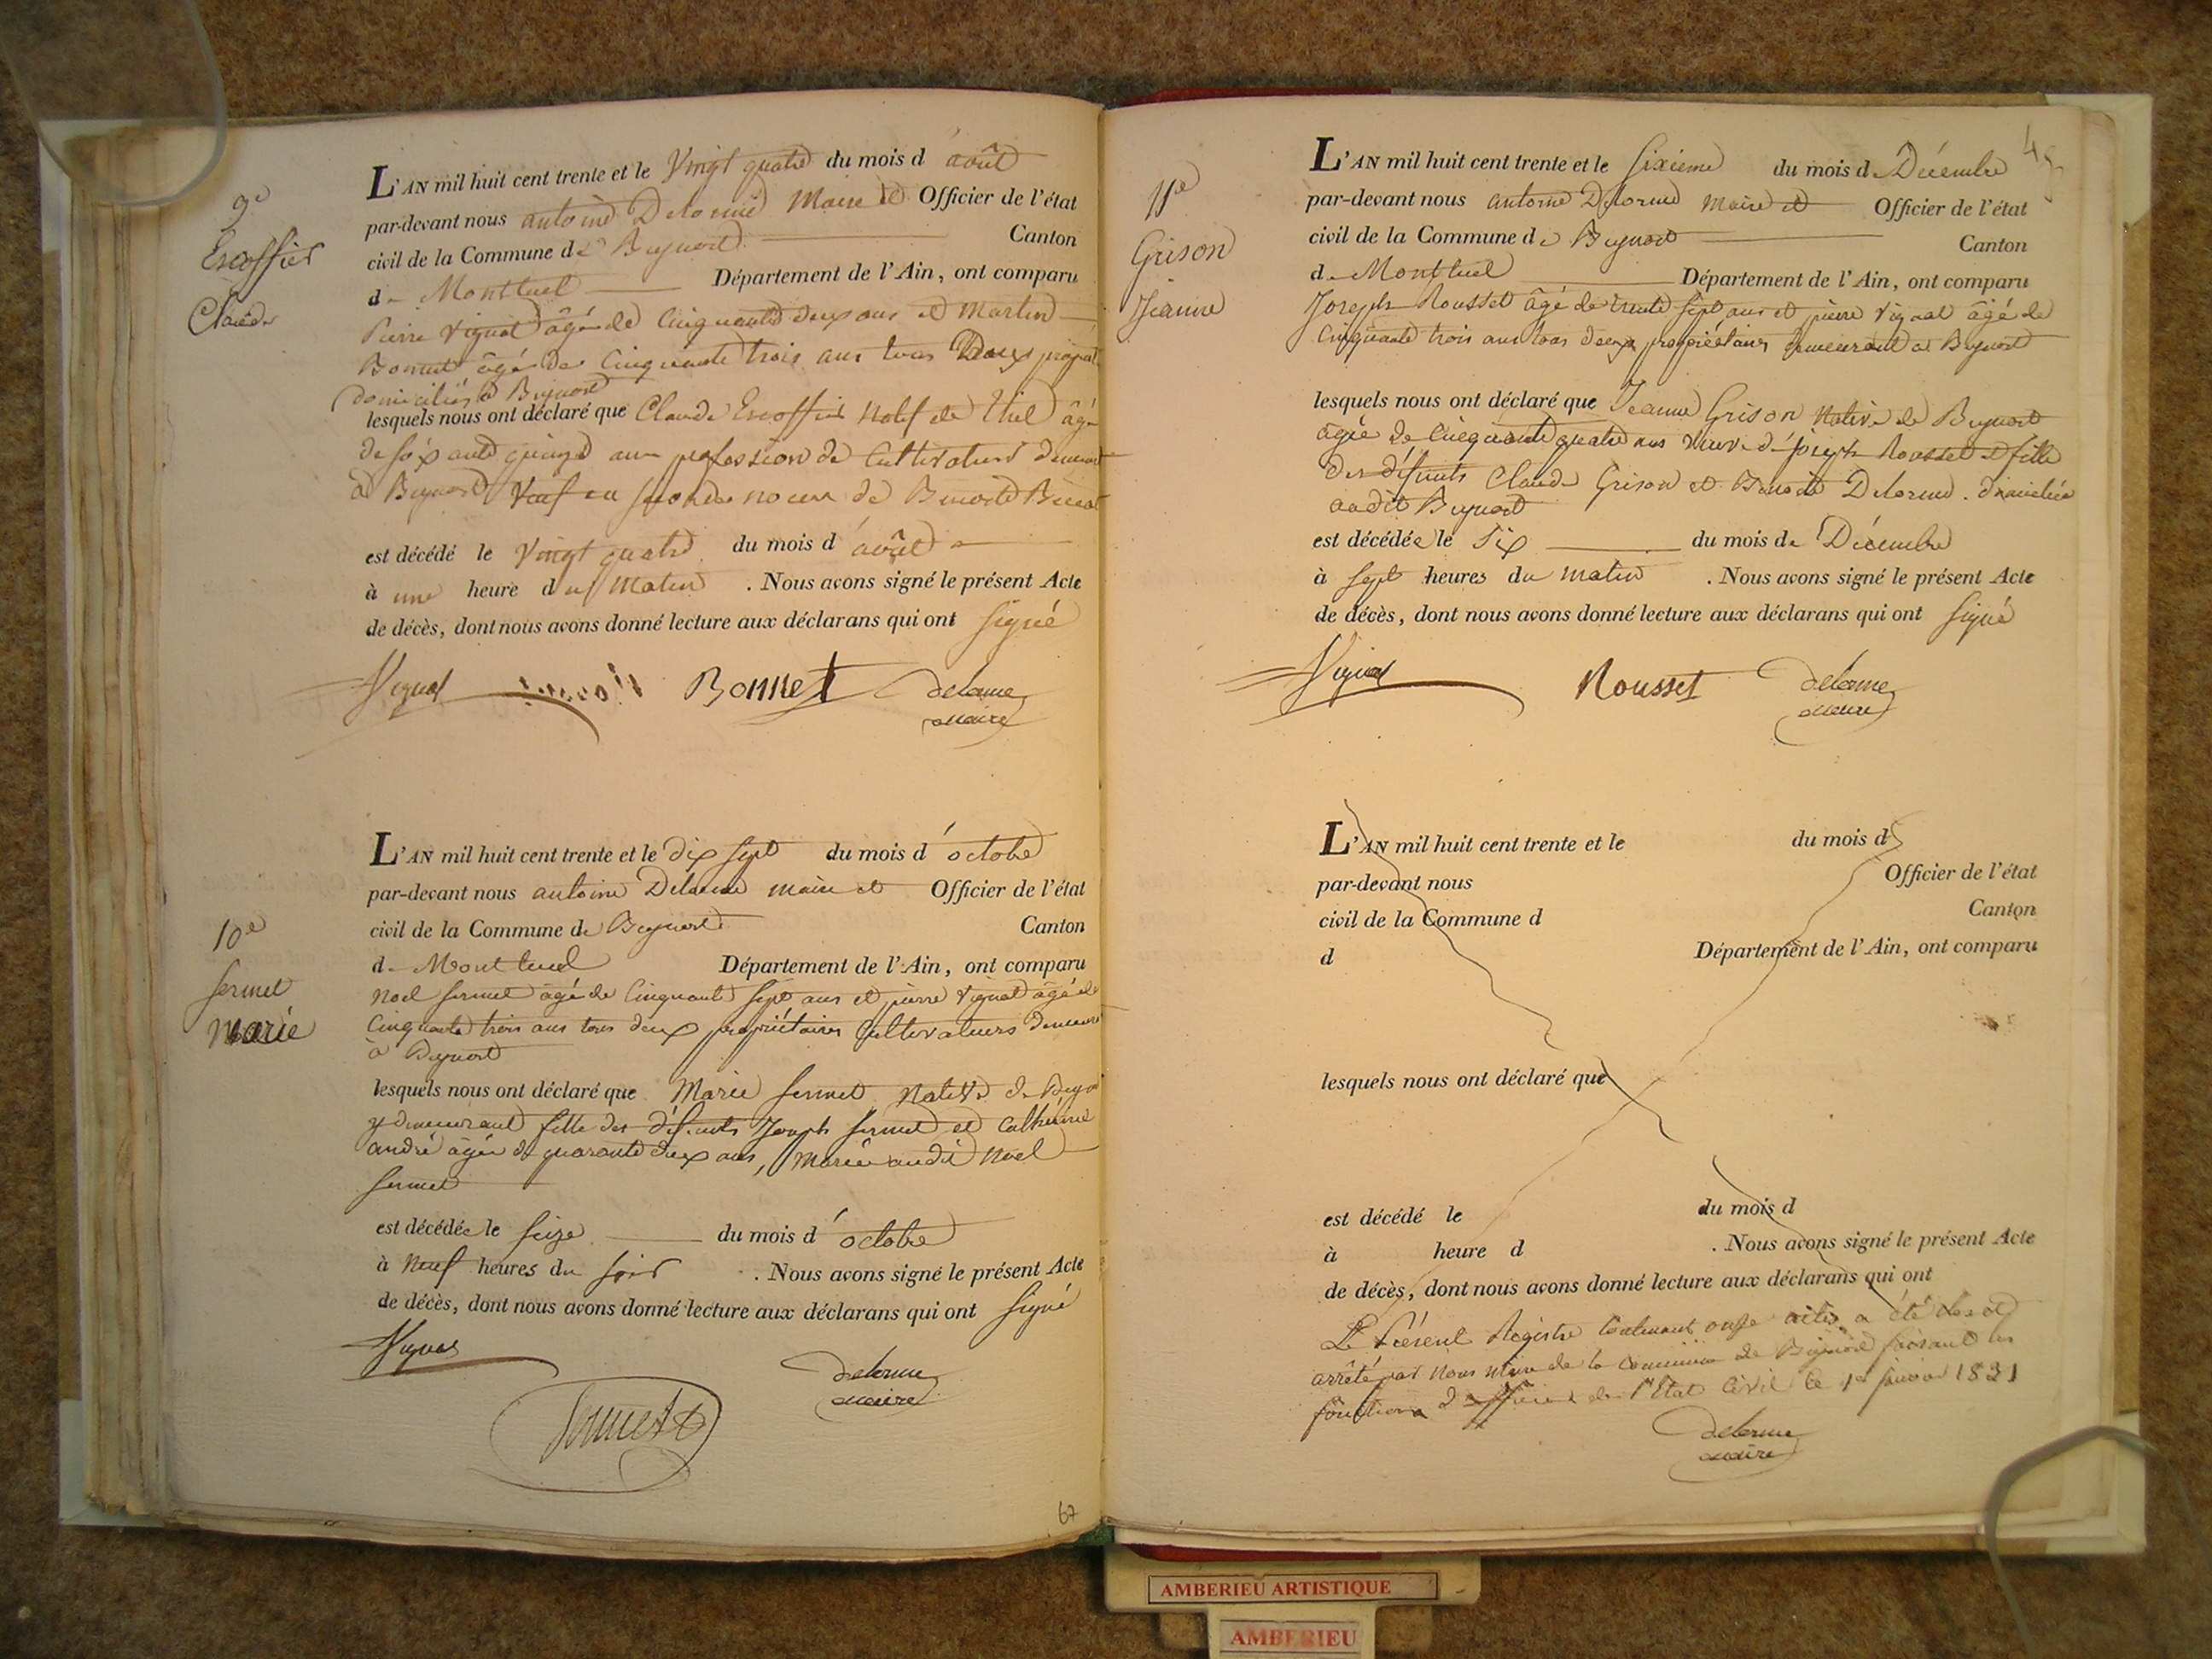 9e
Escoffier
Claude
L'AN mil huit cent trente et le Vingt quatre du mois d'août
par-devant nous antoine Delorme Maire et Officier de l'état
civil de la Commune de Beynost Canton
de Montluel Département de l'Ain, ont comparu
Pierre Vignat âgé de Cinquante deux ans et Martin
Bonnet âgé de Cinquante trois ans tous Deux propriét
domiciliés à Beynost
lesquels nous ont déclaré que Claude Escoffier Natif de Thil âgé
de soixante quinze ans profession de Cultivateur demeurant
à Beynost Veuf en secondes noces de Benoite
est décédé le Vingt quatre du mois d'août
à une heure du Matin . Nous avons signé le présent Acte
de décès, dont nous avons donné lecture aux déclarans qui ont signé
Vignat Bonnet delorme
maire
10e
Sermet
Marie
L'AN mil huit cent trente et le dix sept du mois d'octobre
par-devant nous antoine Delorme maire et Officier de l'état
civil de la Commune de Beynost Canton
de Montluel Département de l'Ain, ont comparu
Noel Sermet âgé de Cinquante sept ans et pierre Vignat âgé de
Cinquante trois ans tous deux propriétaires Cultivateurs demeurant
à Beynost
lesquels nous ont déclaré que Marie Sermet Native de Beynost
y demeurant fille des défunts Joseph Sermet et Catherine
andré âgée de quarante deux ans, Mariée audit Noel
Sermet
est décédée le Seize du mois d'octobre
à Neuf heures du soir . Nous avons signé le présent Acte
de décès, dont nous avons donné lecture aux déclarans qui ont signé
Vignat delorme
maire
Sermet
67
45
11e
Grison
Jeanne
L'AN mil huit cent trente et le Sixieme du mois de Décembre
par-devant nous antoine Delorme maire et Officier de l'état
civil de la Commune de Beynost Canton
de Montluel Département de l'Ain, ont comparu
Joseph Rousset âgé de trente sept ans et pierre Vignat âgé de
Cinquante trois ans tous deux propriétaires demeurant à Beynost
lesquels nous ont déclaré que Jeanne Grison Native de Beynost
âgée de Cinquante quatre ans veuve de joseph Rousset et fille
des défunts Claude Grison et Benoite Delorme. domiciliée
audit Beynost
est décédée le Six du mois de Décembre
à sept heures du matin . Nous avons signé le présent Acte
de décès, dont nous avons donné lecture aux déclarans qui ont signé
Vignat Rousset delorme
maire
L'AN mil huit cent trente et le du mois d
par-devant nous Officier de l'état
civil de la Commune d Canton
d Département de l'Ain, ont comparu
lesquels nous ont déclaré que
est décédé le du mois d
à heure d . Nous avons signé le présent Acte
de décès, dont nous avons donné lecture aux déclarans qui ont
Le Présent Registre Contenant onze actes a été clos et
arrêté par Nous Maire de la Commune de Beynost faisant les
fonctions d'officier de l'Etat Civil le 1er janvier 1831
delorme
maire
AMBERIEU ARTISTIQUE
AMBERIEU